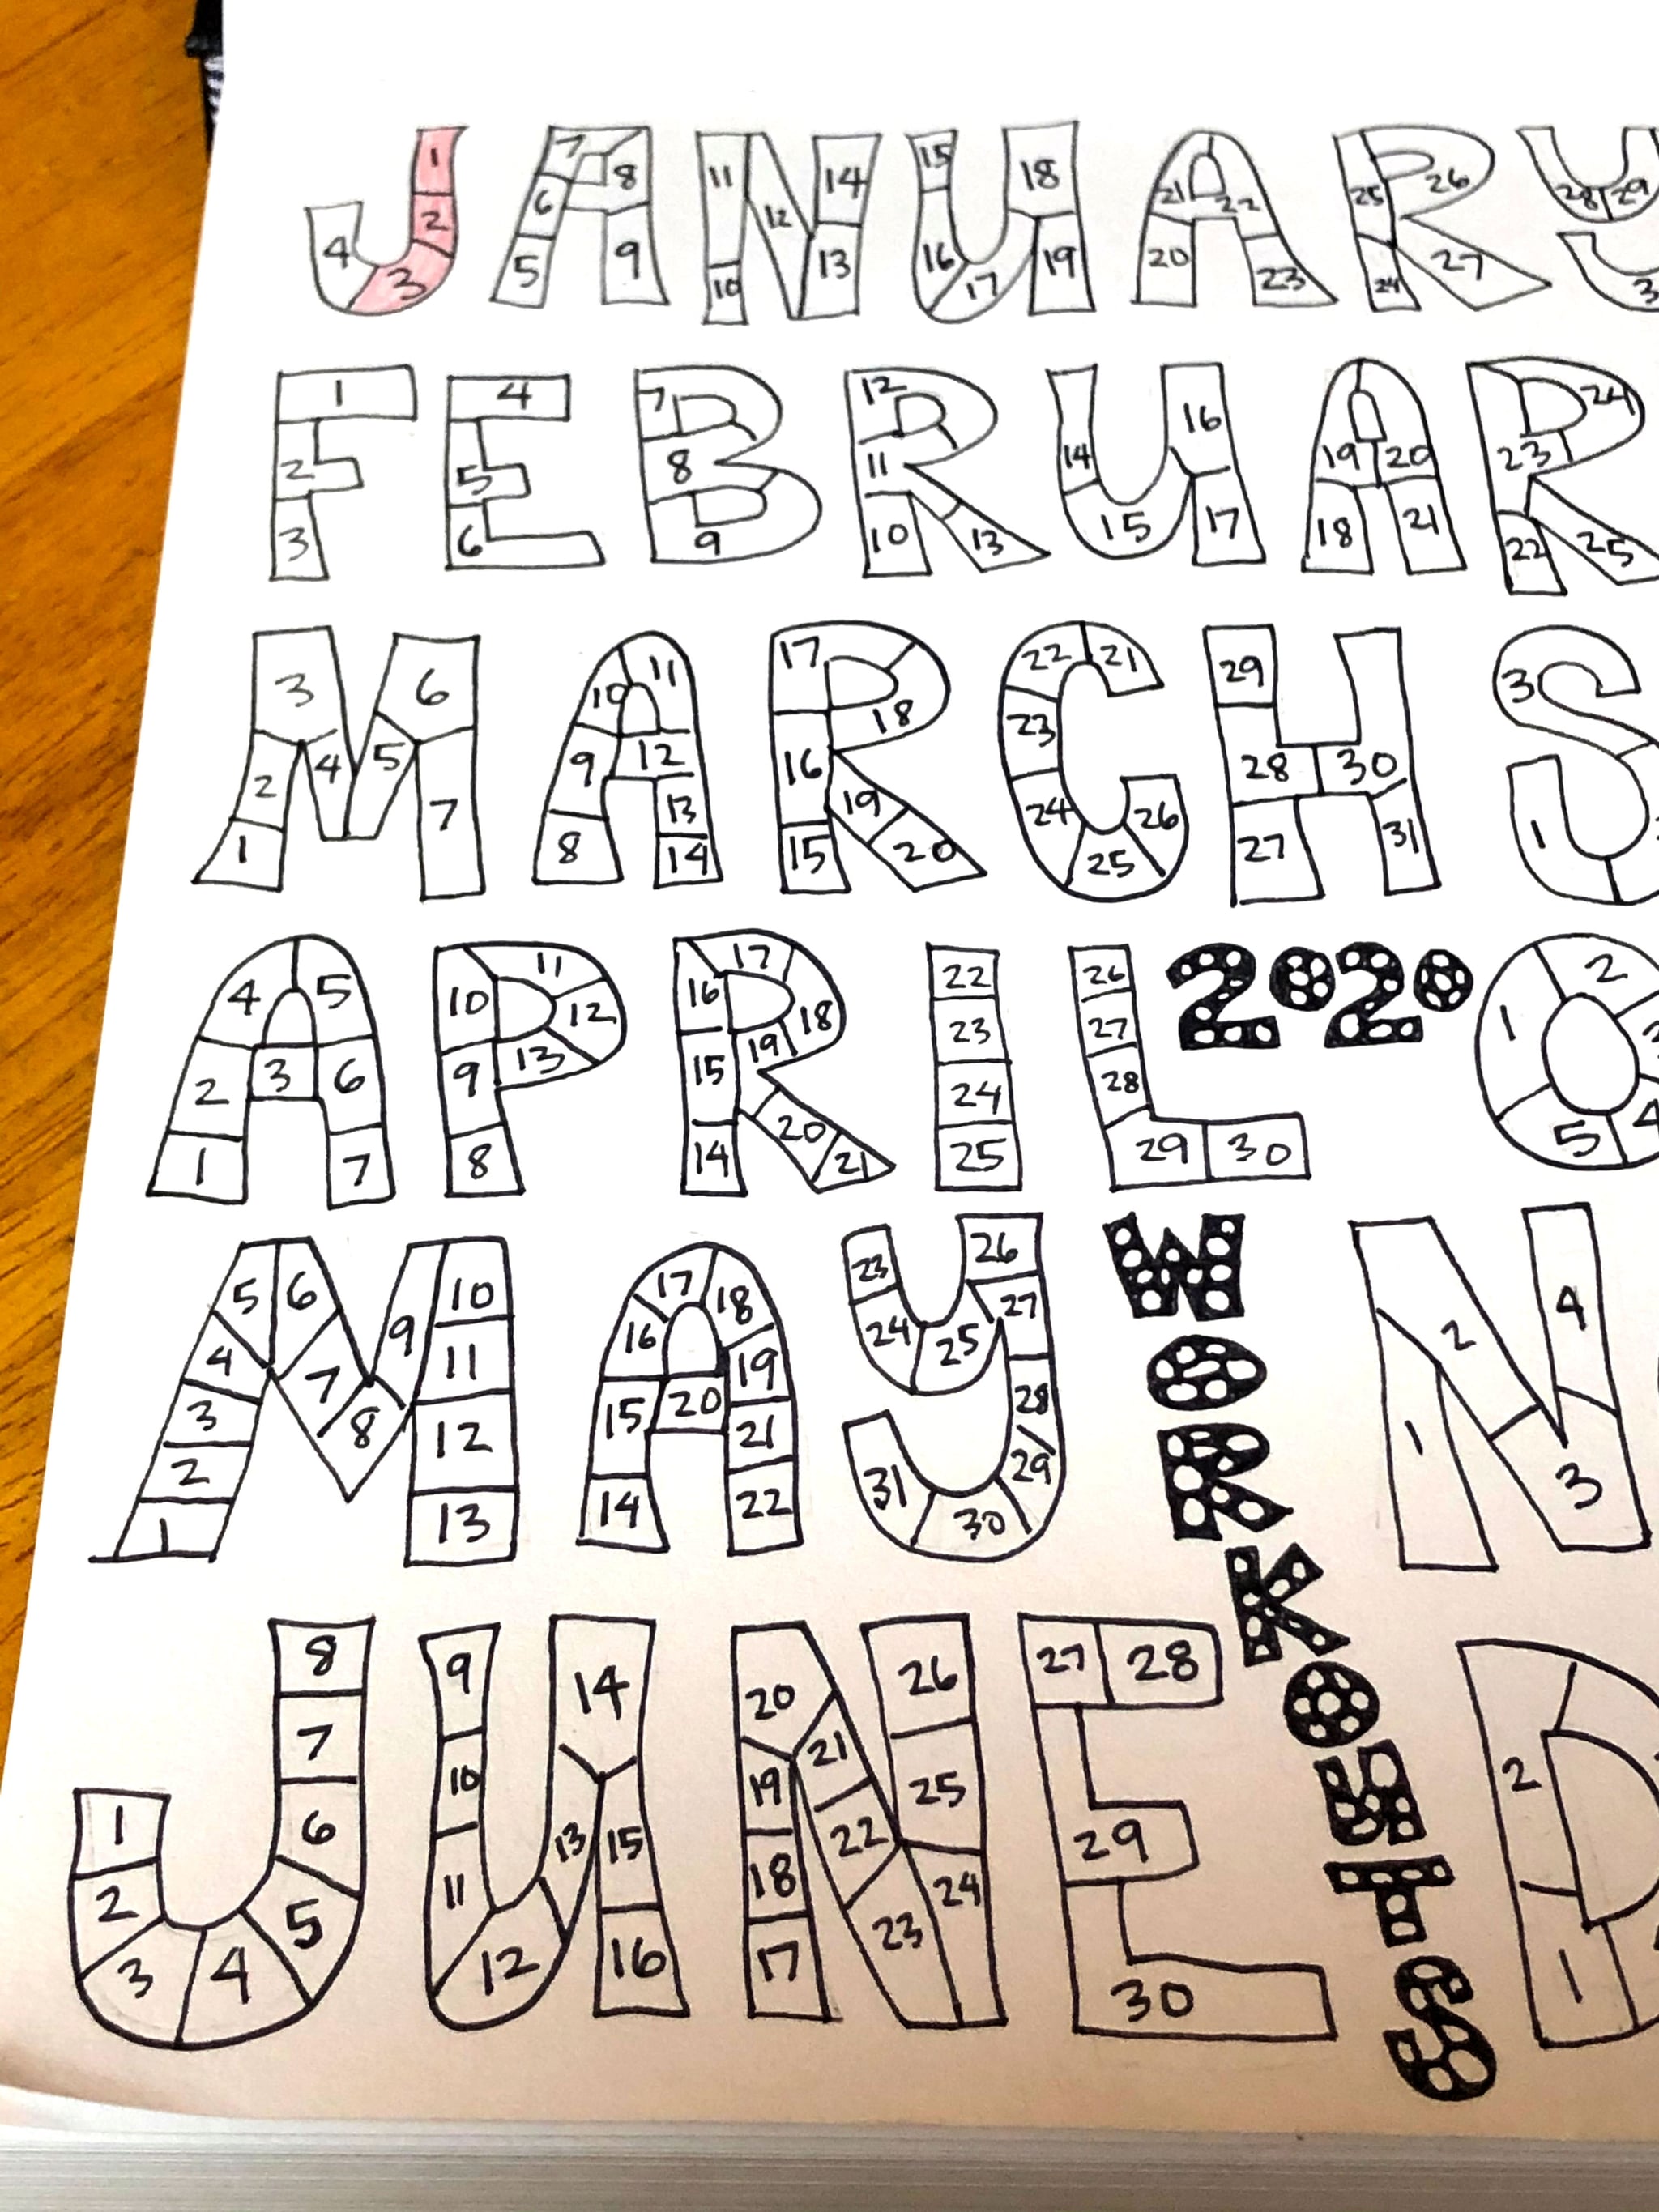 JANUARY
1 2 3 4 5 6 7 8 9 10 11 12 13 14 15 16 17 18 19 20 21 22 23 24 25 26 27 28 29
FEBRUAR
1 2 3 4 5 6 7 8 9 10 11 12 13 14 15 16 17 18 19 20 21 22 23 24 25
MARCH S
1 2 3 4 5 6 7 8 9 10 11 12 13 14 15 16 17 18 19 20 21 22 23 24 25 26 27 28 29 30 31 1 3
APRIL 2020 O
1 2 3 4 5 6 7 8 9 10 11 12 13 14 15 16 17 18 19 20 21 22 23 24 25 26 27 28 29 30 1 2 4 5
MAY N
1 2 3 4 5 6 7 8 9 10 11 12 13 14 15 16 17 18 19 20 21 22 23 24 25 26 27 28 29 30 31 1 2 3 4
JUNE D
1 2 3 4 5 6 7 8 9 10 11 12 13 14 15 16 17 18 19 20 21 22 23 24 25 26 27 28 29 30 1 2
WORKOUTS